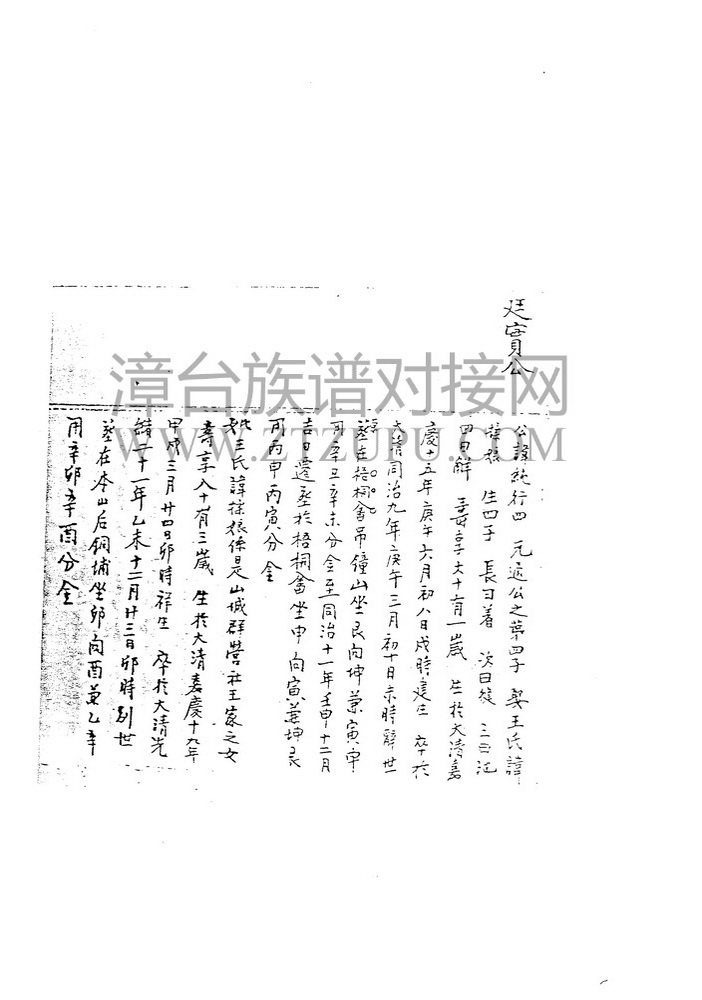 廷實公
公諱純行四 元 公之第四子 娶王氏諱
生四子 長曰着 次曰 三曰
四曰鮮 壽享六十有一歲 生於大清嘉
慶十五年庚午六月初八日戌時建生 卒於
大清同治九年庚午三月初十日未時辭世
葬在梧桐畲吊鐘山坐艮向坤兼寅申
用辛丑辛未分金至同治十一年壬申十二月
吉日遷葬於梧桐畲坐申向寅兼坤艮
用丙申丙寅分金
妣王氏諱 娘係是山城群營社王家之女
壽享八十有三歲 生於大清嘉慶十九年
甲戌三月廿四日卯時祥生 卒於大清光
緒二十一年乙未十二月廿三日卯時別世
葬在本山后銅埔坐卯向酉兼乙辛
用辛卯辛酉分金
漳台族谱对接网
WWW.ZTZUPU.COM